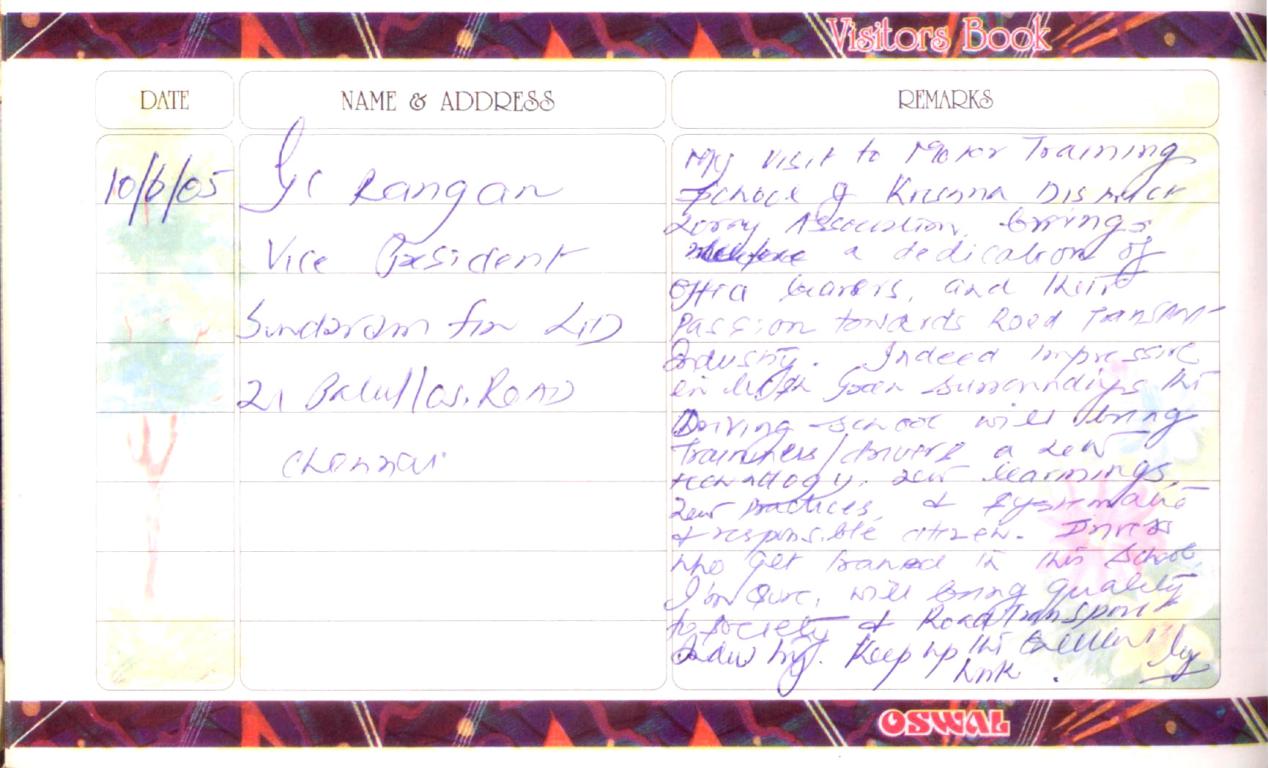 Visitors Book
DATE
NAME & ADDRESS
REMARKS
10/6/05
Rangan
Vice President
Sundaram Fin LTD
21 Road
Chennai
My visit to Motor Training
School of Krishna District
Lorry Association, brings
a dedication of
office bearers, and their
Passion towards Road Transport
Industry. Indeed impressive
in green surroundings the
Driving school will bring
trainees/drivers a new
technology, new learnings,
new practices, & systematic
& responsible citizen. Drivers
who get trained in this School
I'm sure, will bring quality
to society & Road Transport
Industry. Keep up the Excellent
work.
OSWAL